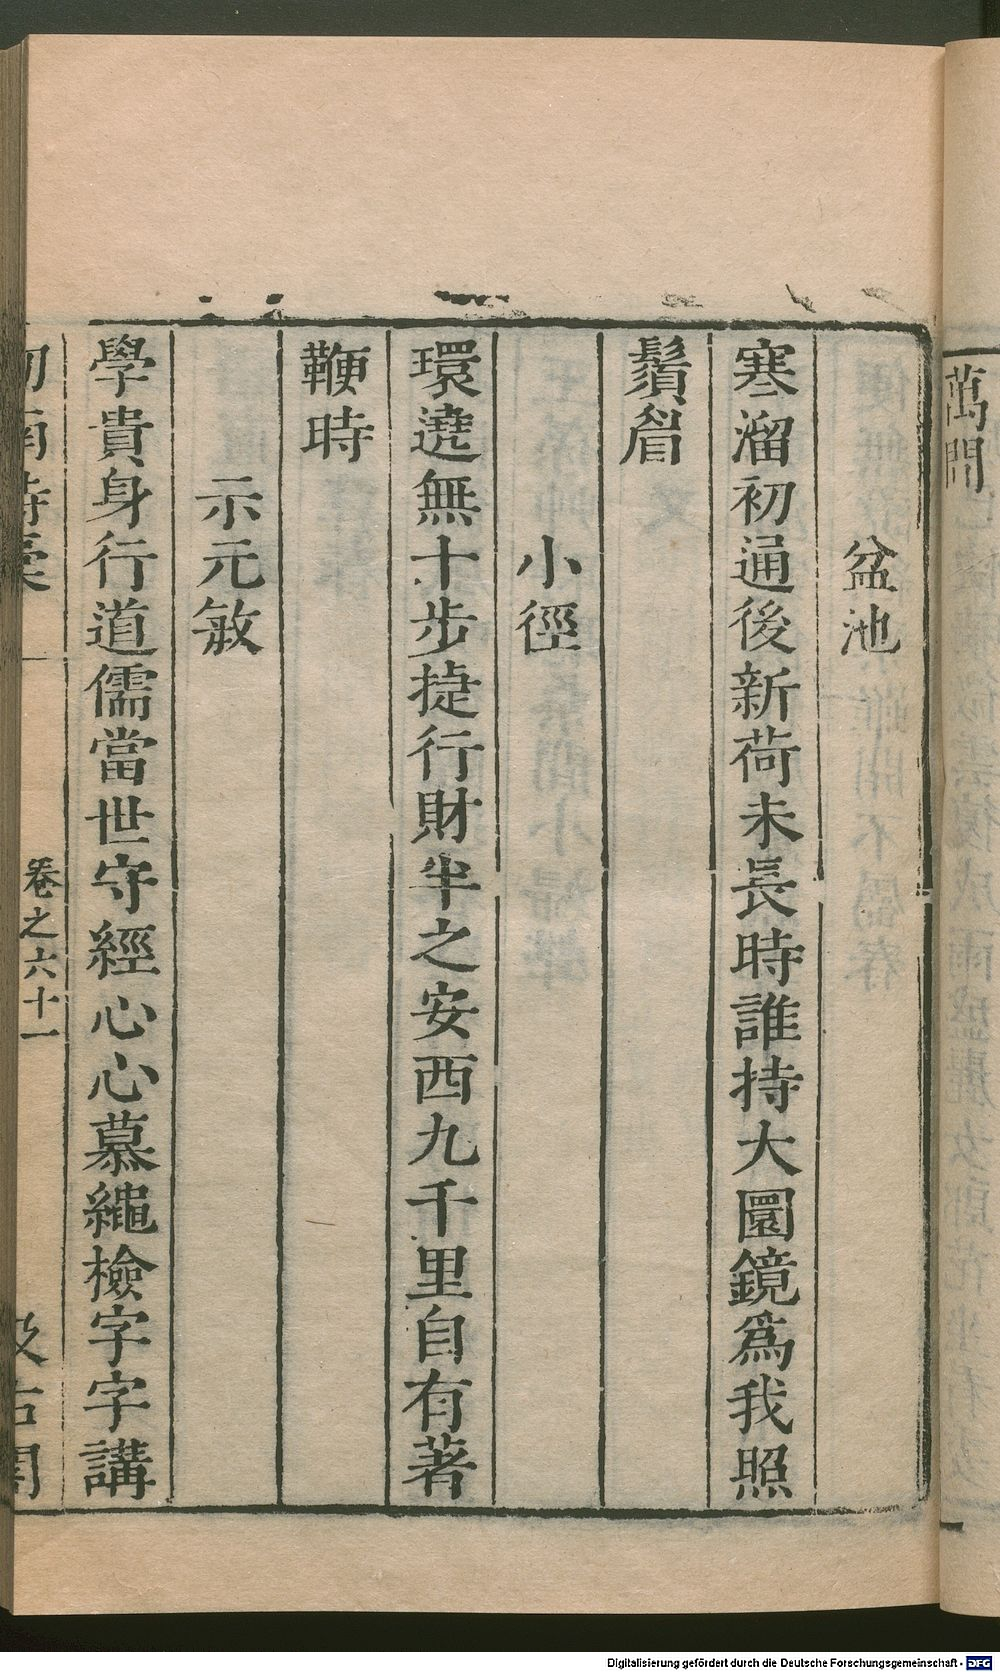 萬間
盆池
寒溜初通後新荷未長時誰持大圓鏡爲我照
鬚眉
小徑
環遶無十步捷行財半之安西九千里自有著
鞭時
示元敏
學貴身行道儒當世守經心心慕繩檢字字講
劍南詩稾
卷之六十一
汲古閣
Digitalisierung gefördert durch die Deutsche Forschungsgemeinschaft - DFG